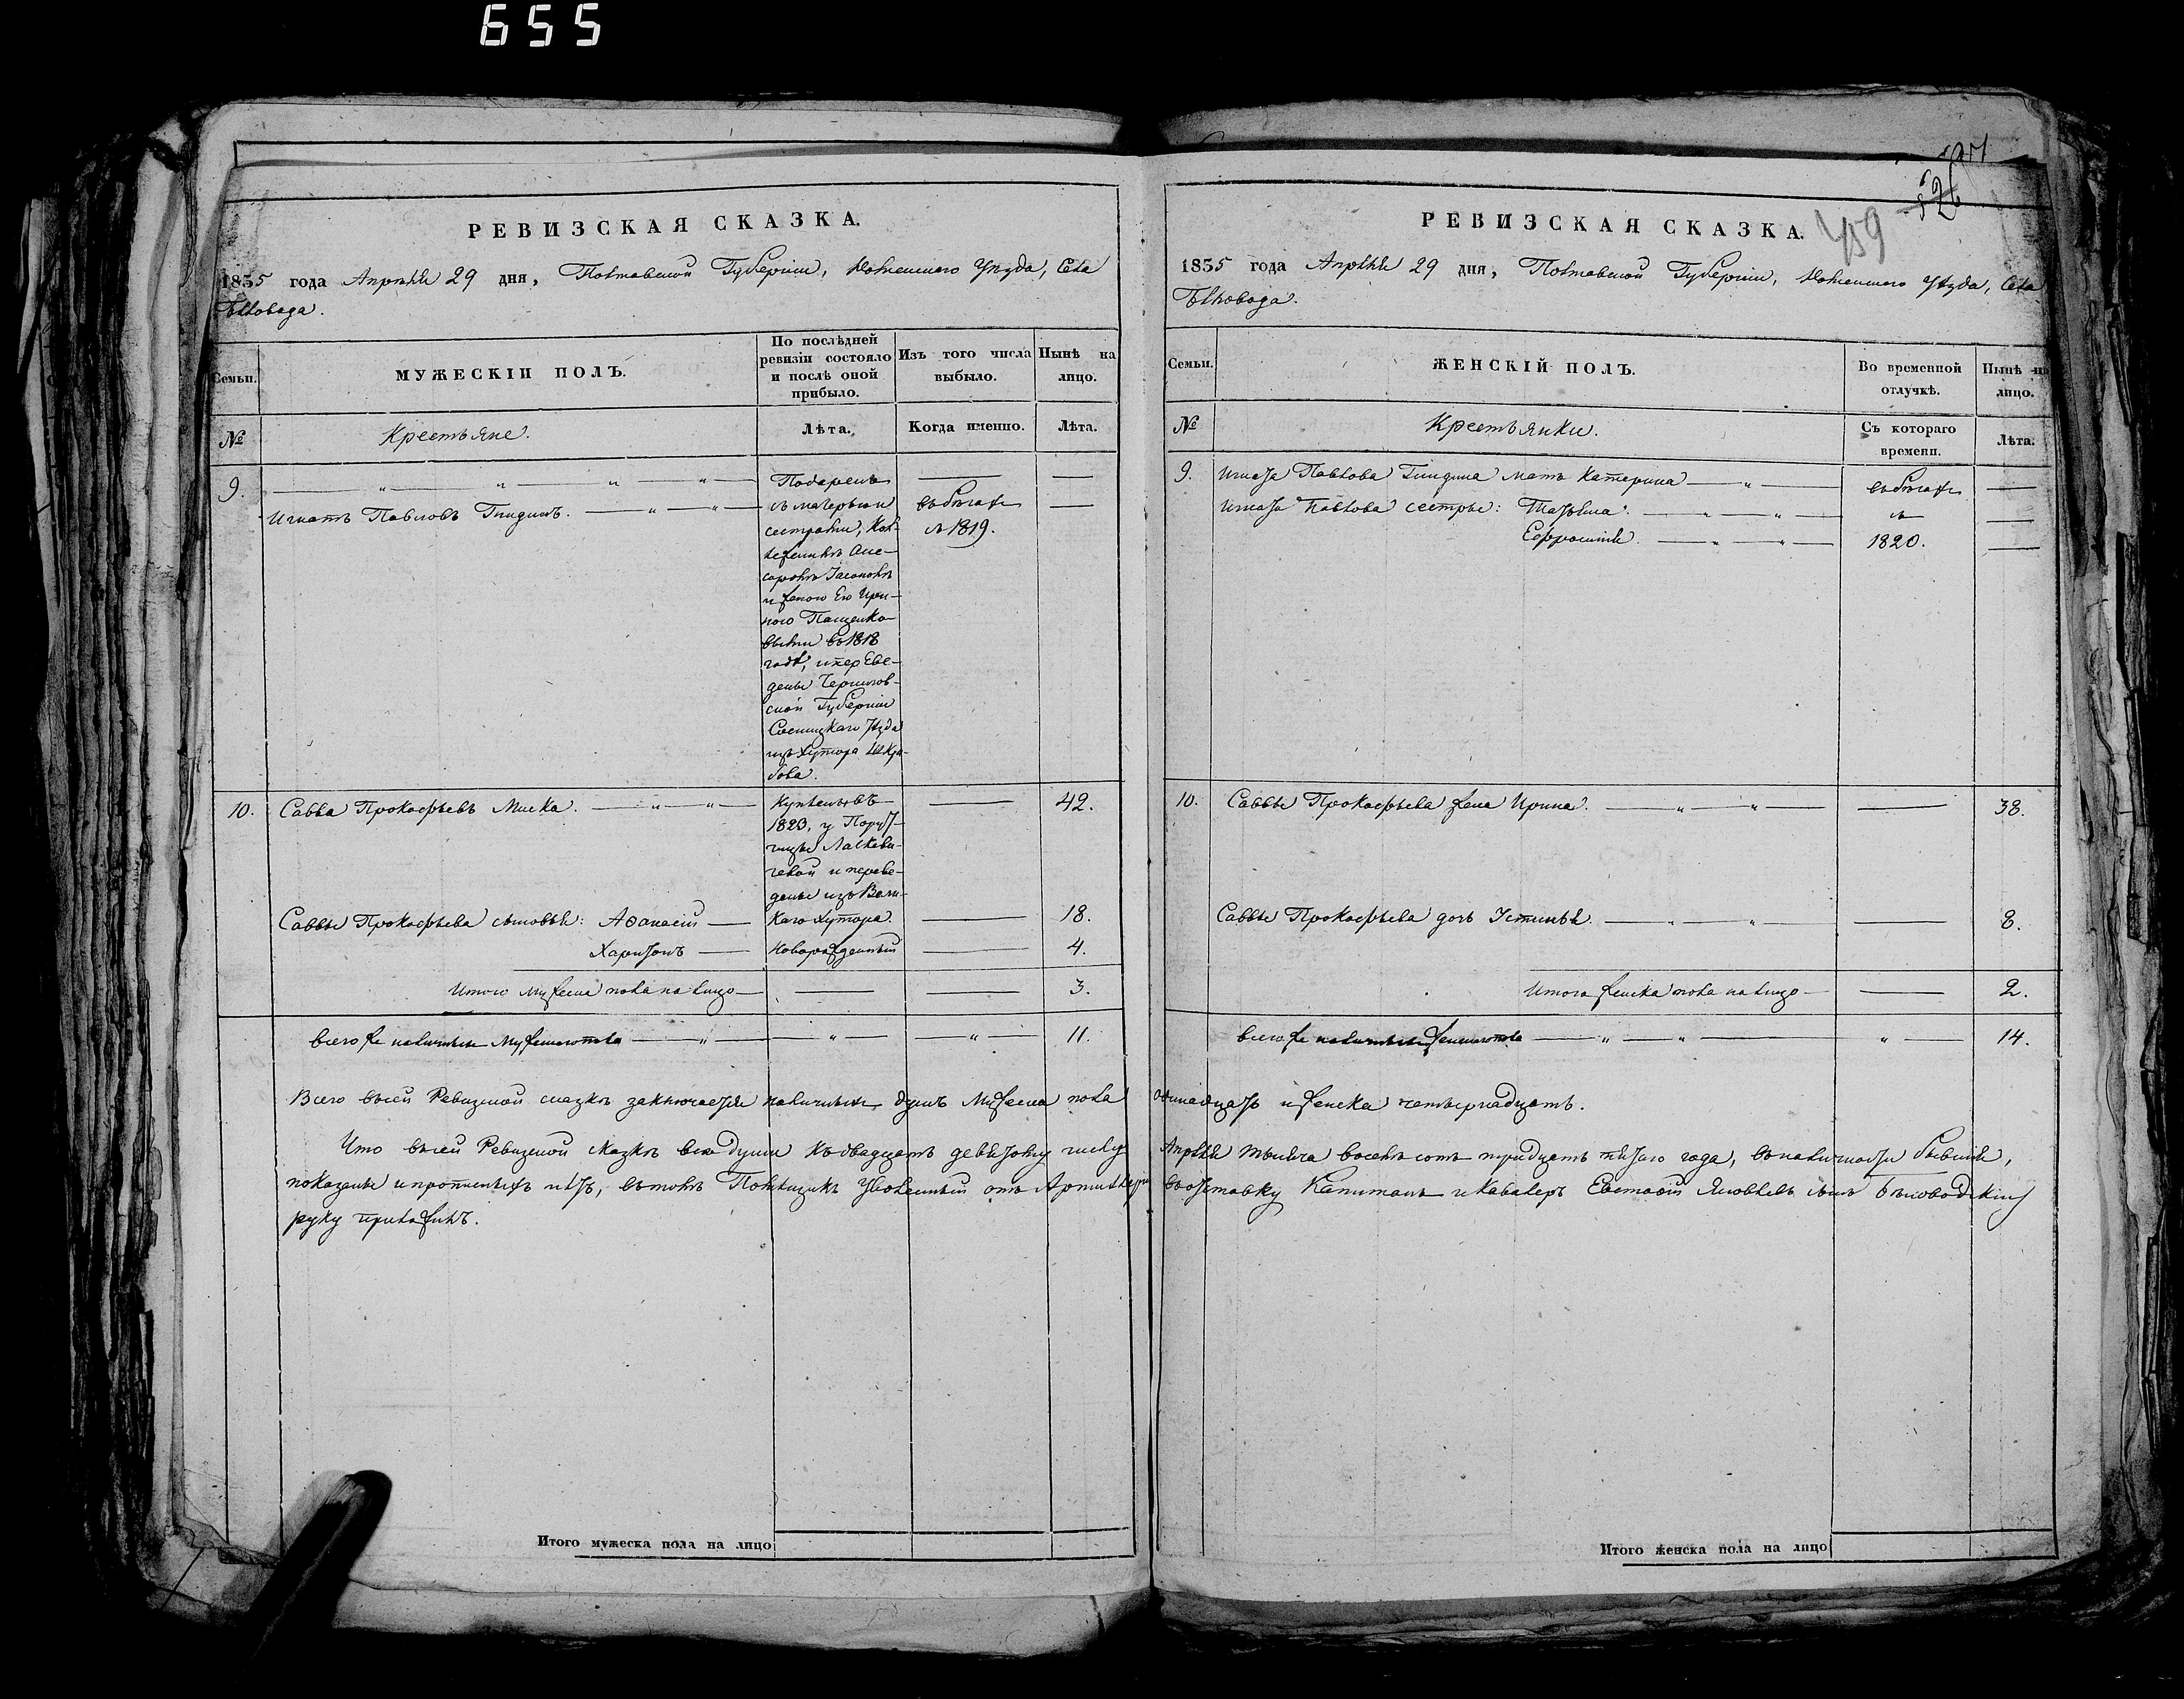 655
РЕВИЗСКАЯ СКАЗКА.
1835 года Апрѣля 29 дня, Полтавской Губерніи, Роменского Уѣзда, Села
Бѣловода.
Семьи.
МУЖЕСКІЙ ПОЛЪ.
По послѣдней ревизіи состояло и послѣ оной прибыло.
Изъ того числа выбыло.
Нынѣ на лицо.
№
Крестьяне.
Лѣта.
Когда именно.
Лѣта.
9.
Игнатъ Павловъ
Подаренъ
съ матерью и
сестрами, Кол-
лежскимъ Асе-
соромъ
и женою Его Ири-
ною Пащенко-
выми въ 1818
годѣ, и перЕве-
дены Чернигов-
ской Губерніи
Сосницкаго Уѣзда
изъ хутора
въ бѣгахъ
съ 1819.
10. Савва Прокофьевъ Миска.
Купленъ въ
1823, у Пору-
чицы
и переве-
дены изъ
каго хутора.
42.
Саввы Прокофьева сыновья: Аѳанасій
18.
Харитонъ
Новорожденный
4.
Итого мужеска пола на лицо
3.
Всего же наличныхъ мужескаго пола
11.
Всего въ сей Ревизской сказкѣ заключается наличныхъ душъ мужеска пола
Что въ сей Ревизской сказкѣ всѣ души къ двадцать девятому числу
показаны и прописныхъ нѣтъ, въ томъ Помѣщикъ Уволенный отъ Артиллеріи
руку приложилъ.
РЕВИЗСКАЯ СКАЗКА.
459
526
1835 года Апрѣля 29 дня, Полтавской Губерніи, Роменского Уѣзда, Села
Бѣловода.
Семьи.
ЖЕНСКІЙ ПОЛЪ.
Во временной отлучкѣ.
Нынѣ на лицо.
№
Крестьянки.
Съ котораго времени.
Лѣта.
9. Игната Павлова мать Катерина
въ бѣгахъ
Игната Павлова сестры: Татьяна.
съ
Ефросинія.
1820.
10. Саввы Прокофьева жена Ирина.
38.
Саввы Прокофьева дочь Устинья.
8.
Итого женска пола на лицо
2.
Всего же наличныхъ женскаго пола
14.
одинадцать и женска четырнадцать.
Апрѣля тысяча восемь сотъ тридцать пятаго года, въ наличности бывшія,
въ отставку Капитанъ и Кавалеръ Евстафій Яковлевъ сынъ Бѣловодскій
Итого мужеска пола на лицо
Итого женска пола на лицо